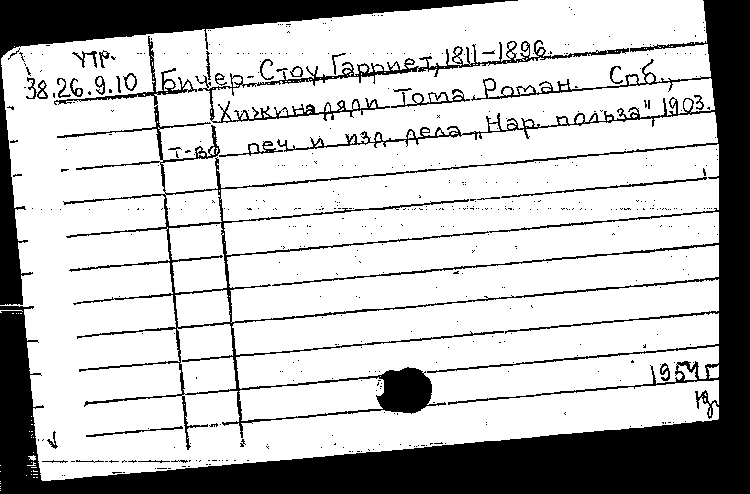 утр.
38.26.9.10 Бичер-Стоу, Гарриет, 1811-1896.
Хижина дяди Тома. Роман. Спб.,
т-во печ. и изд. дела „Нар. польза", 1903.
1954 г